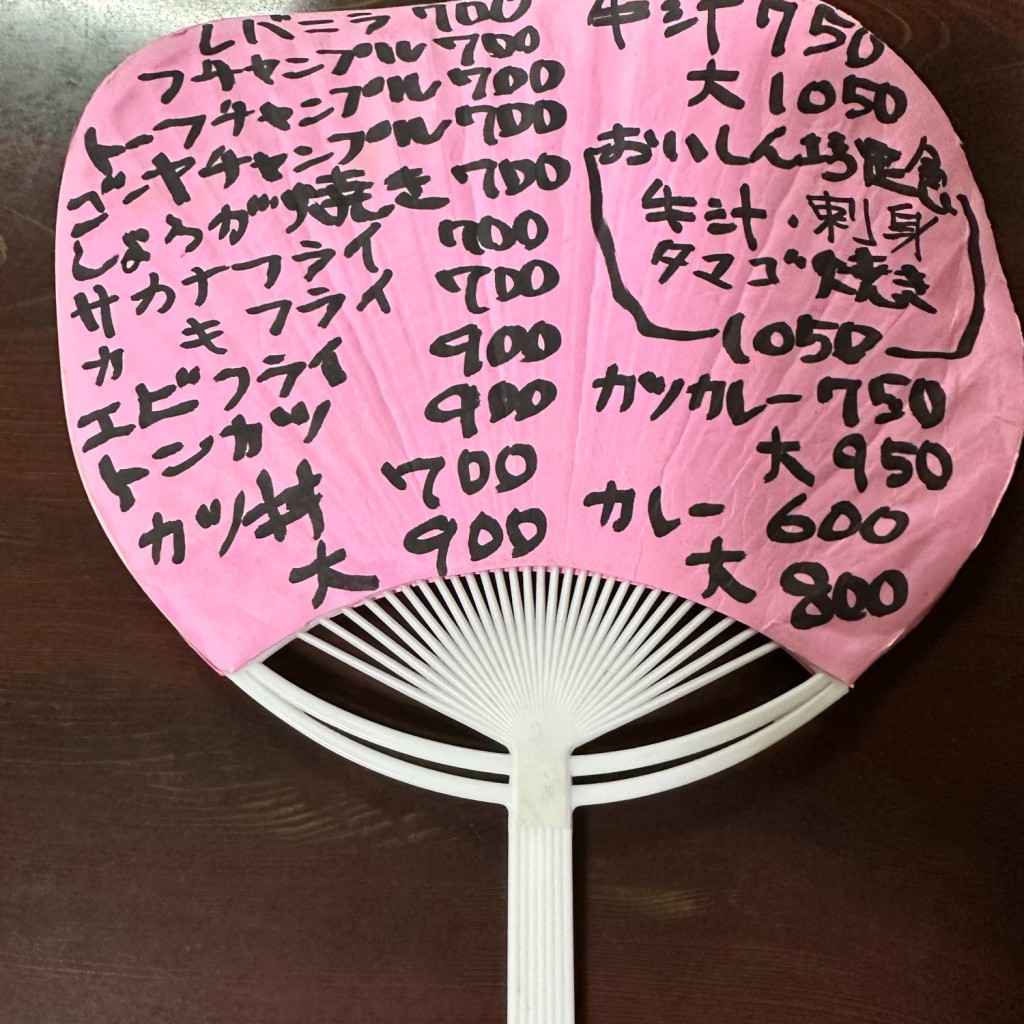 レバニラ 700
フチャンプル 700
トーフチャンプル 700
ゴーヤチャンプル 700
しょうが焼き 700
サカナフライ 700
カキフライ 700
エビフライ 900
トンカツ 900
カツ丼 700
大 900
牛汁 750
大 1050
おいしん坊定食
牛汁・刺身
タマゴ焼き
1050
カツカレー 750
大 950
カレー 600
大 800